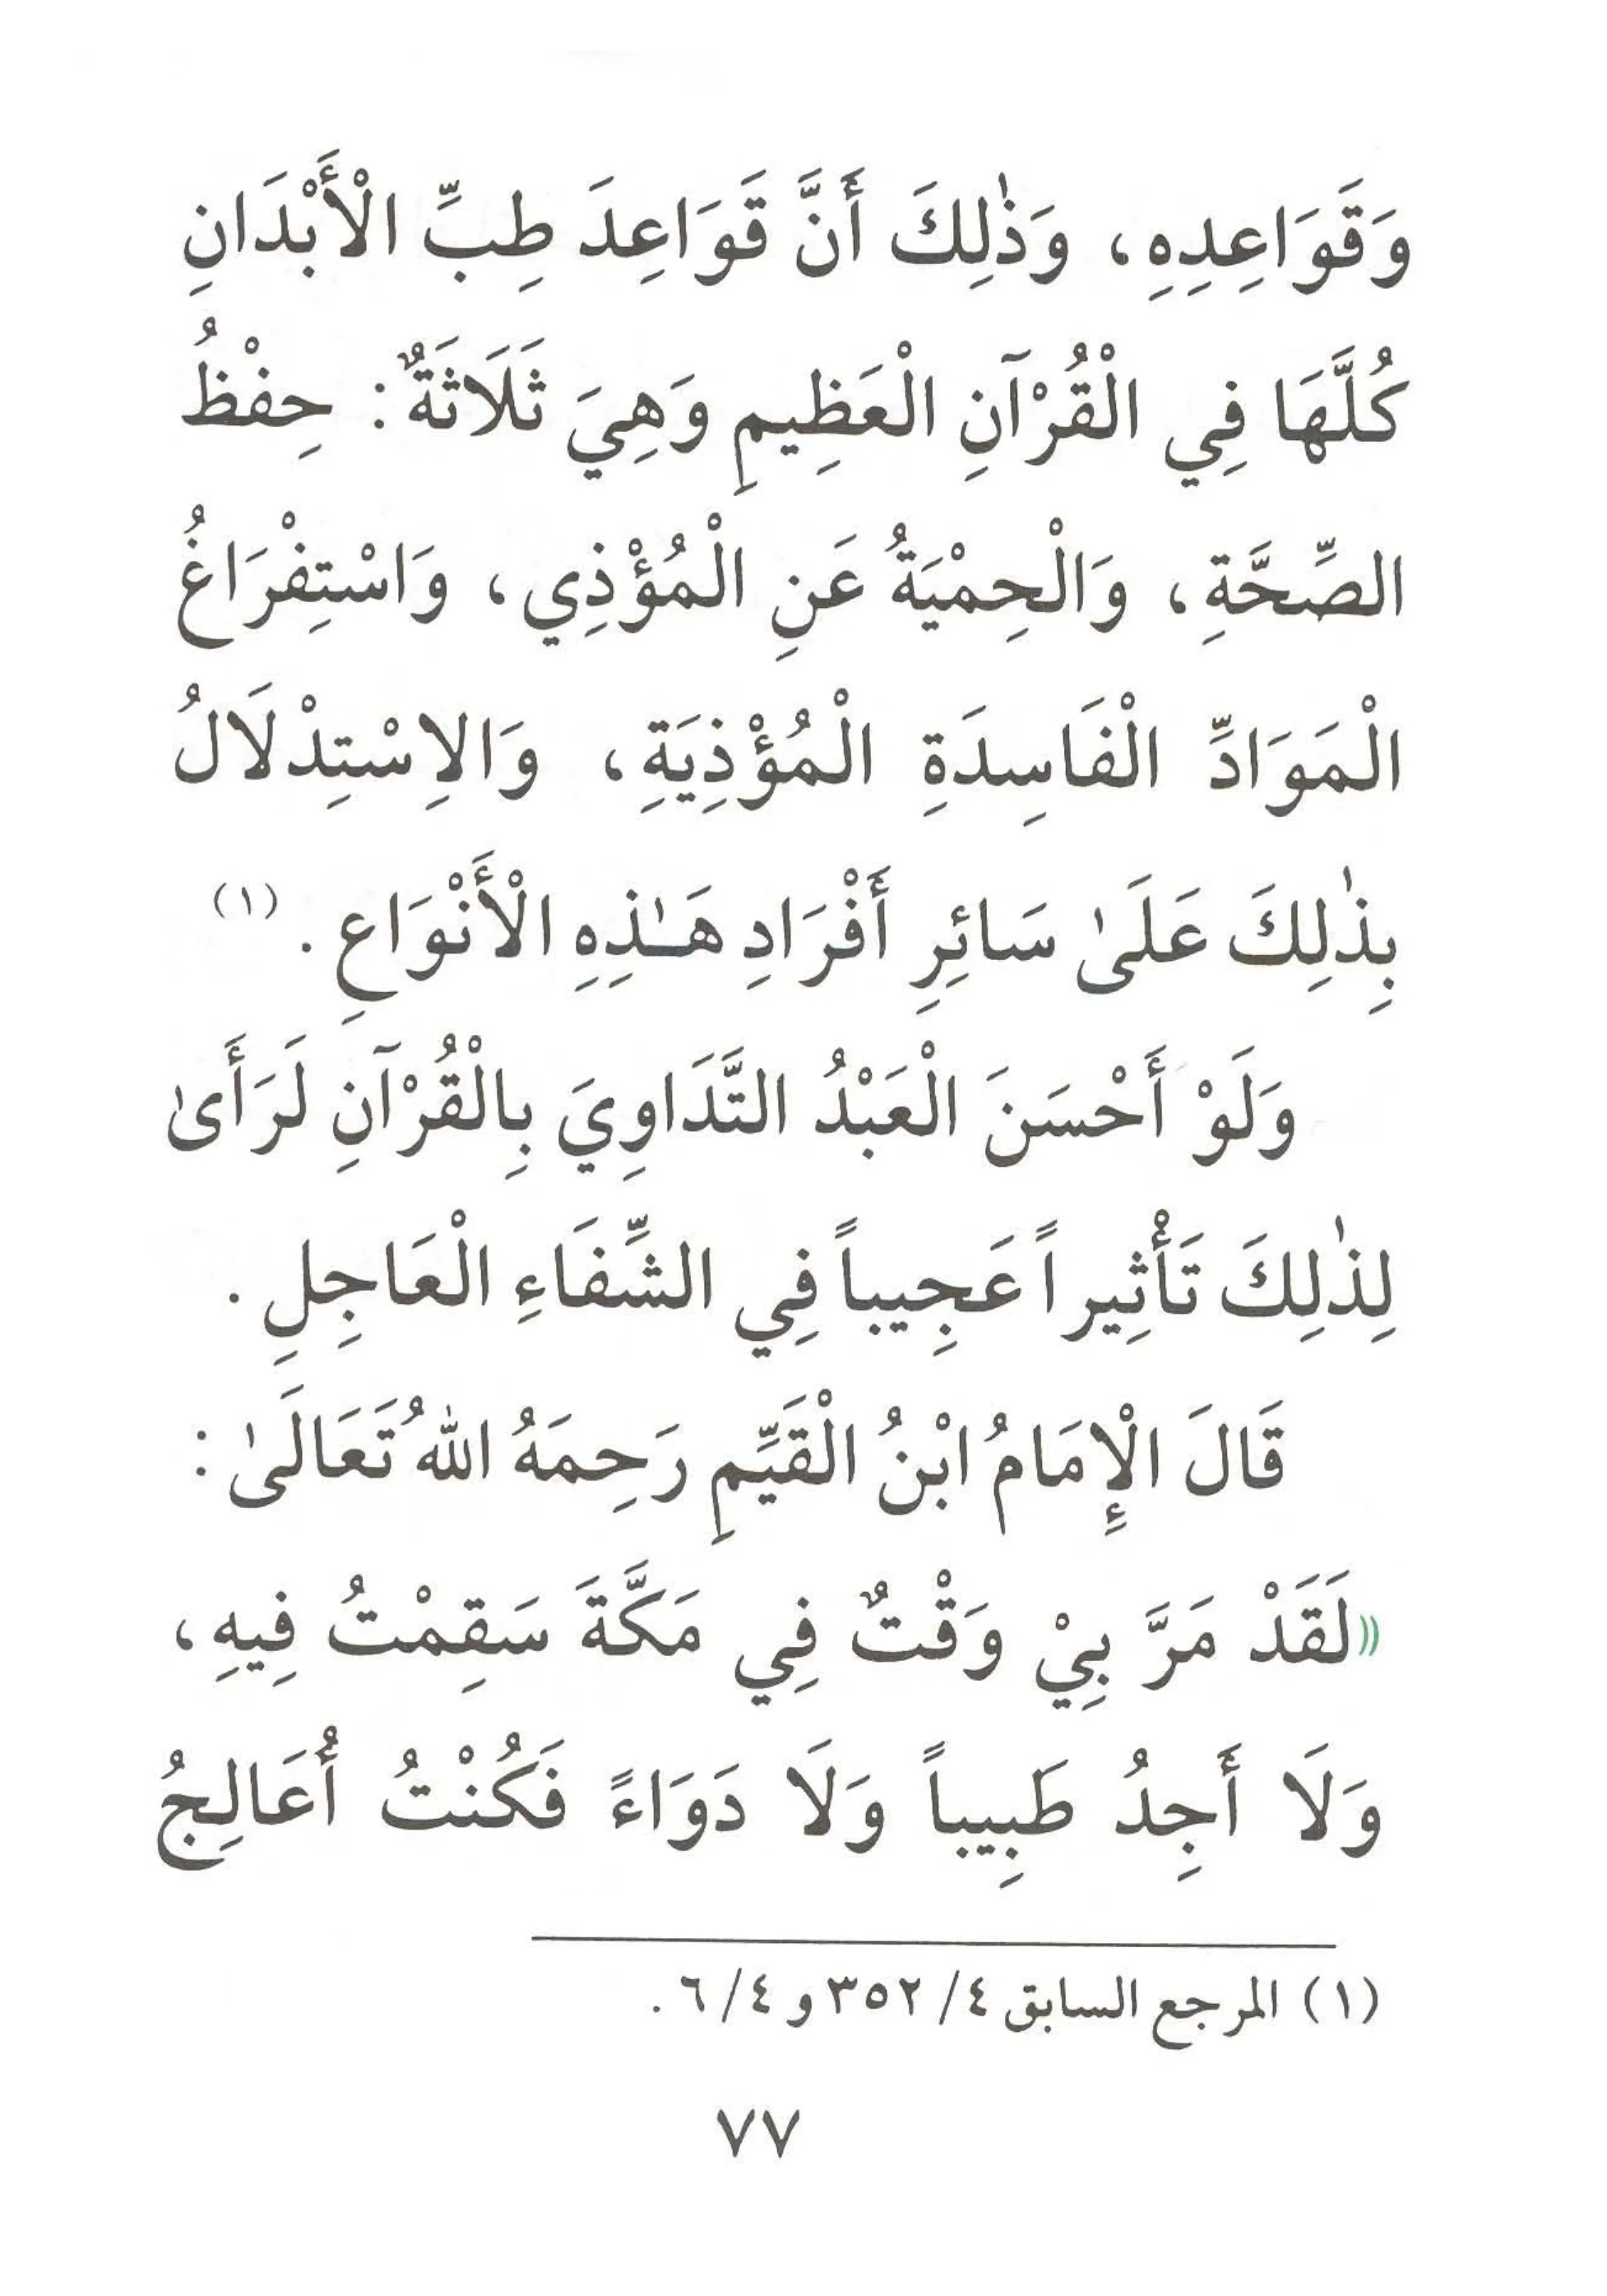 وَقَوَاعِدِهِ، وَذٰلِكَ أَنَّ قَوَاعِدَ طِبِّ الْأَبْدَانِ
كُلَّهَا فِي الْقُرْآنِ الْعَظِيمِ وَهِيَ ثَلَاثَةٌ: حِفْظُ
الصِّحَّةِ، وَالْحِمْيَةُ عَنِ الْمُؤْذِي، وَاسْتِفْرَاغُ
الْمَوَادِّ الْفَاسِدَةِ الْمُؤْذِيَةِ، وَالِاسْتِدْلَالُ
بِذٰلِكَ عَلَىٰ سَائِرِ أَفْرَادِ هَـٰذِهِ الْأَنْوَاعِ. (١)
وَلَوْ أَحْسَنَ الْعَبْدُ التَّدَاوِيَ بِالْقُرْآنِ لَرَأَىٰ
لِذٰلِكَ تَأْثِيراً عَجِيباً فِي الشِّفَاءِ الْعَاجِلِ.
قَالَ الْإِمَامُ ابْنُ الْقَيِّمِ رَحِمَهُ اللهُ تَعَالَىٰ:
«لَقَدْ مَرَّ بِيْ وَقْتٌ فِي مَكَّةَ سَقِمْتُ فِيهِ،
وَلَا أَجِدُ طَبِيباً وَلَا دَوَاءً فَكُنْتُ أُعَالِجُ
(١) المرجع السابق ٤/ ٣٥٢ و ٤/ ٦.
٧٧